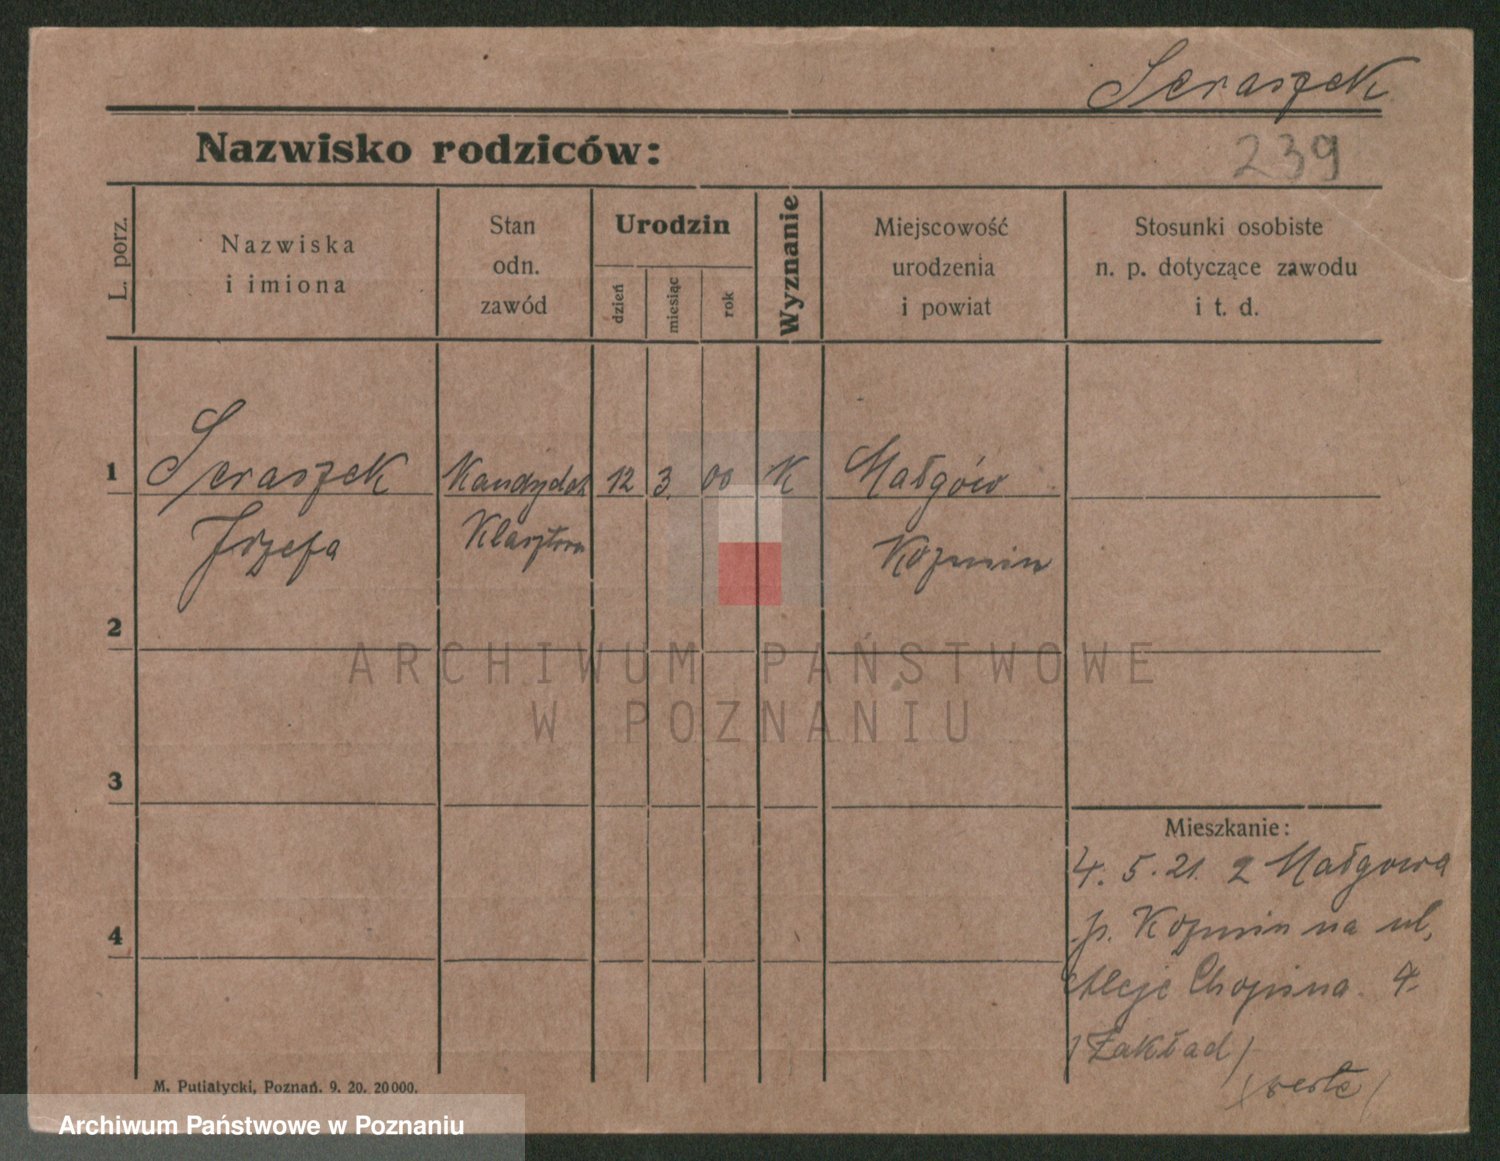 Seraszek
239
Nazwisko rodziców:
L. porz.
Nazwiska
i imiona
Stan
odn.
zawód
Urodzin
dzień
miesiąc
rok
Wyznanie
Miejscowość
urodzenia
i powiat
Stosunki osobiste
n. p. dotyczące zawodu
i t. d.
1 Seraszek Kandydat 12 3. 00 K Małgów
Józefa Klasztoru Kozmin
2
3
4
Mieszkanie:
4. 5. 21. z Małgowa
p. Kozmin na ul.
Aleje Chopina 4.
/Zakład/
M. Putiatycki, Poznań. 9. 20. 20000.
ARCHIWUM PAŃSTWOWE
W POZNANIU
Archiwum Państwowe w Poznaniu